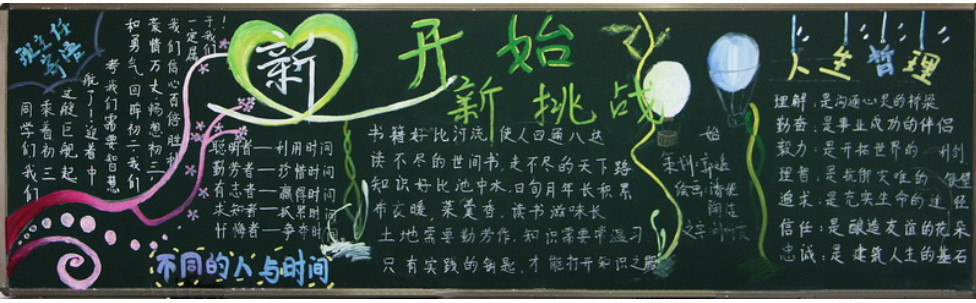 班主任
寄语
同学们我们
乘着初三
这艘巨舰起
航了！迎着中
考我们需要智慧
和勇气回眸初二我们
豪情万丈畅想初三
我们信心百倍胜利
一定属
于我们！
新
开始
新挑战
书籍好比河流,使人四通八达
读不尽的世间书,走不尽的天下路
知识好比池中水,日旬月年长积累
布衣暖,菜羹香,读书滋味长
土地需要勤劳作,知识需要常温习
只有实践的钥匙,才能打开知识之殿
聪明者——利用时间
有志者——赢得时间
求知者
忏悔者
不同的人与时间
策划
绘画
人生哲理
理解:是沟通心灵的桥梁
勤奋:是事业成功的伴侣
毅力:是开拓世界的 利剑
追求:是充实生命的途径
信任:是酿造友谊的花朵
忠诚:是建筑人生的基石